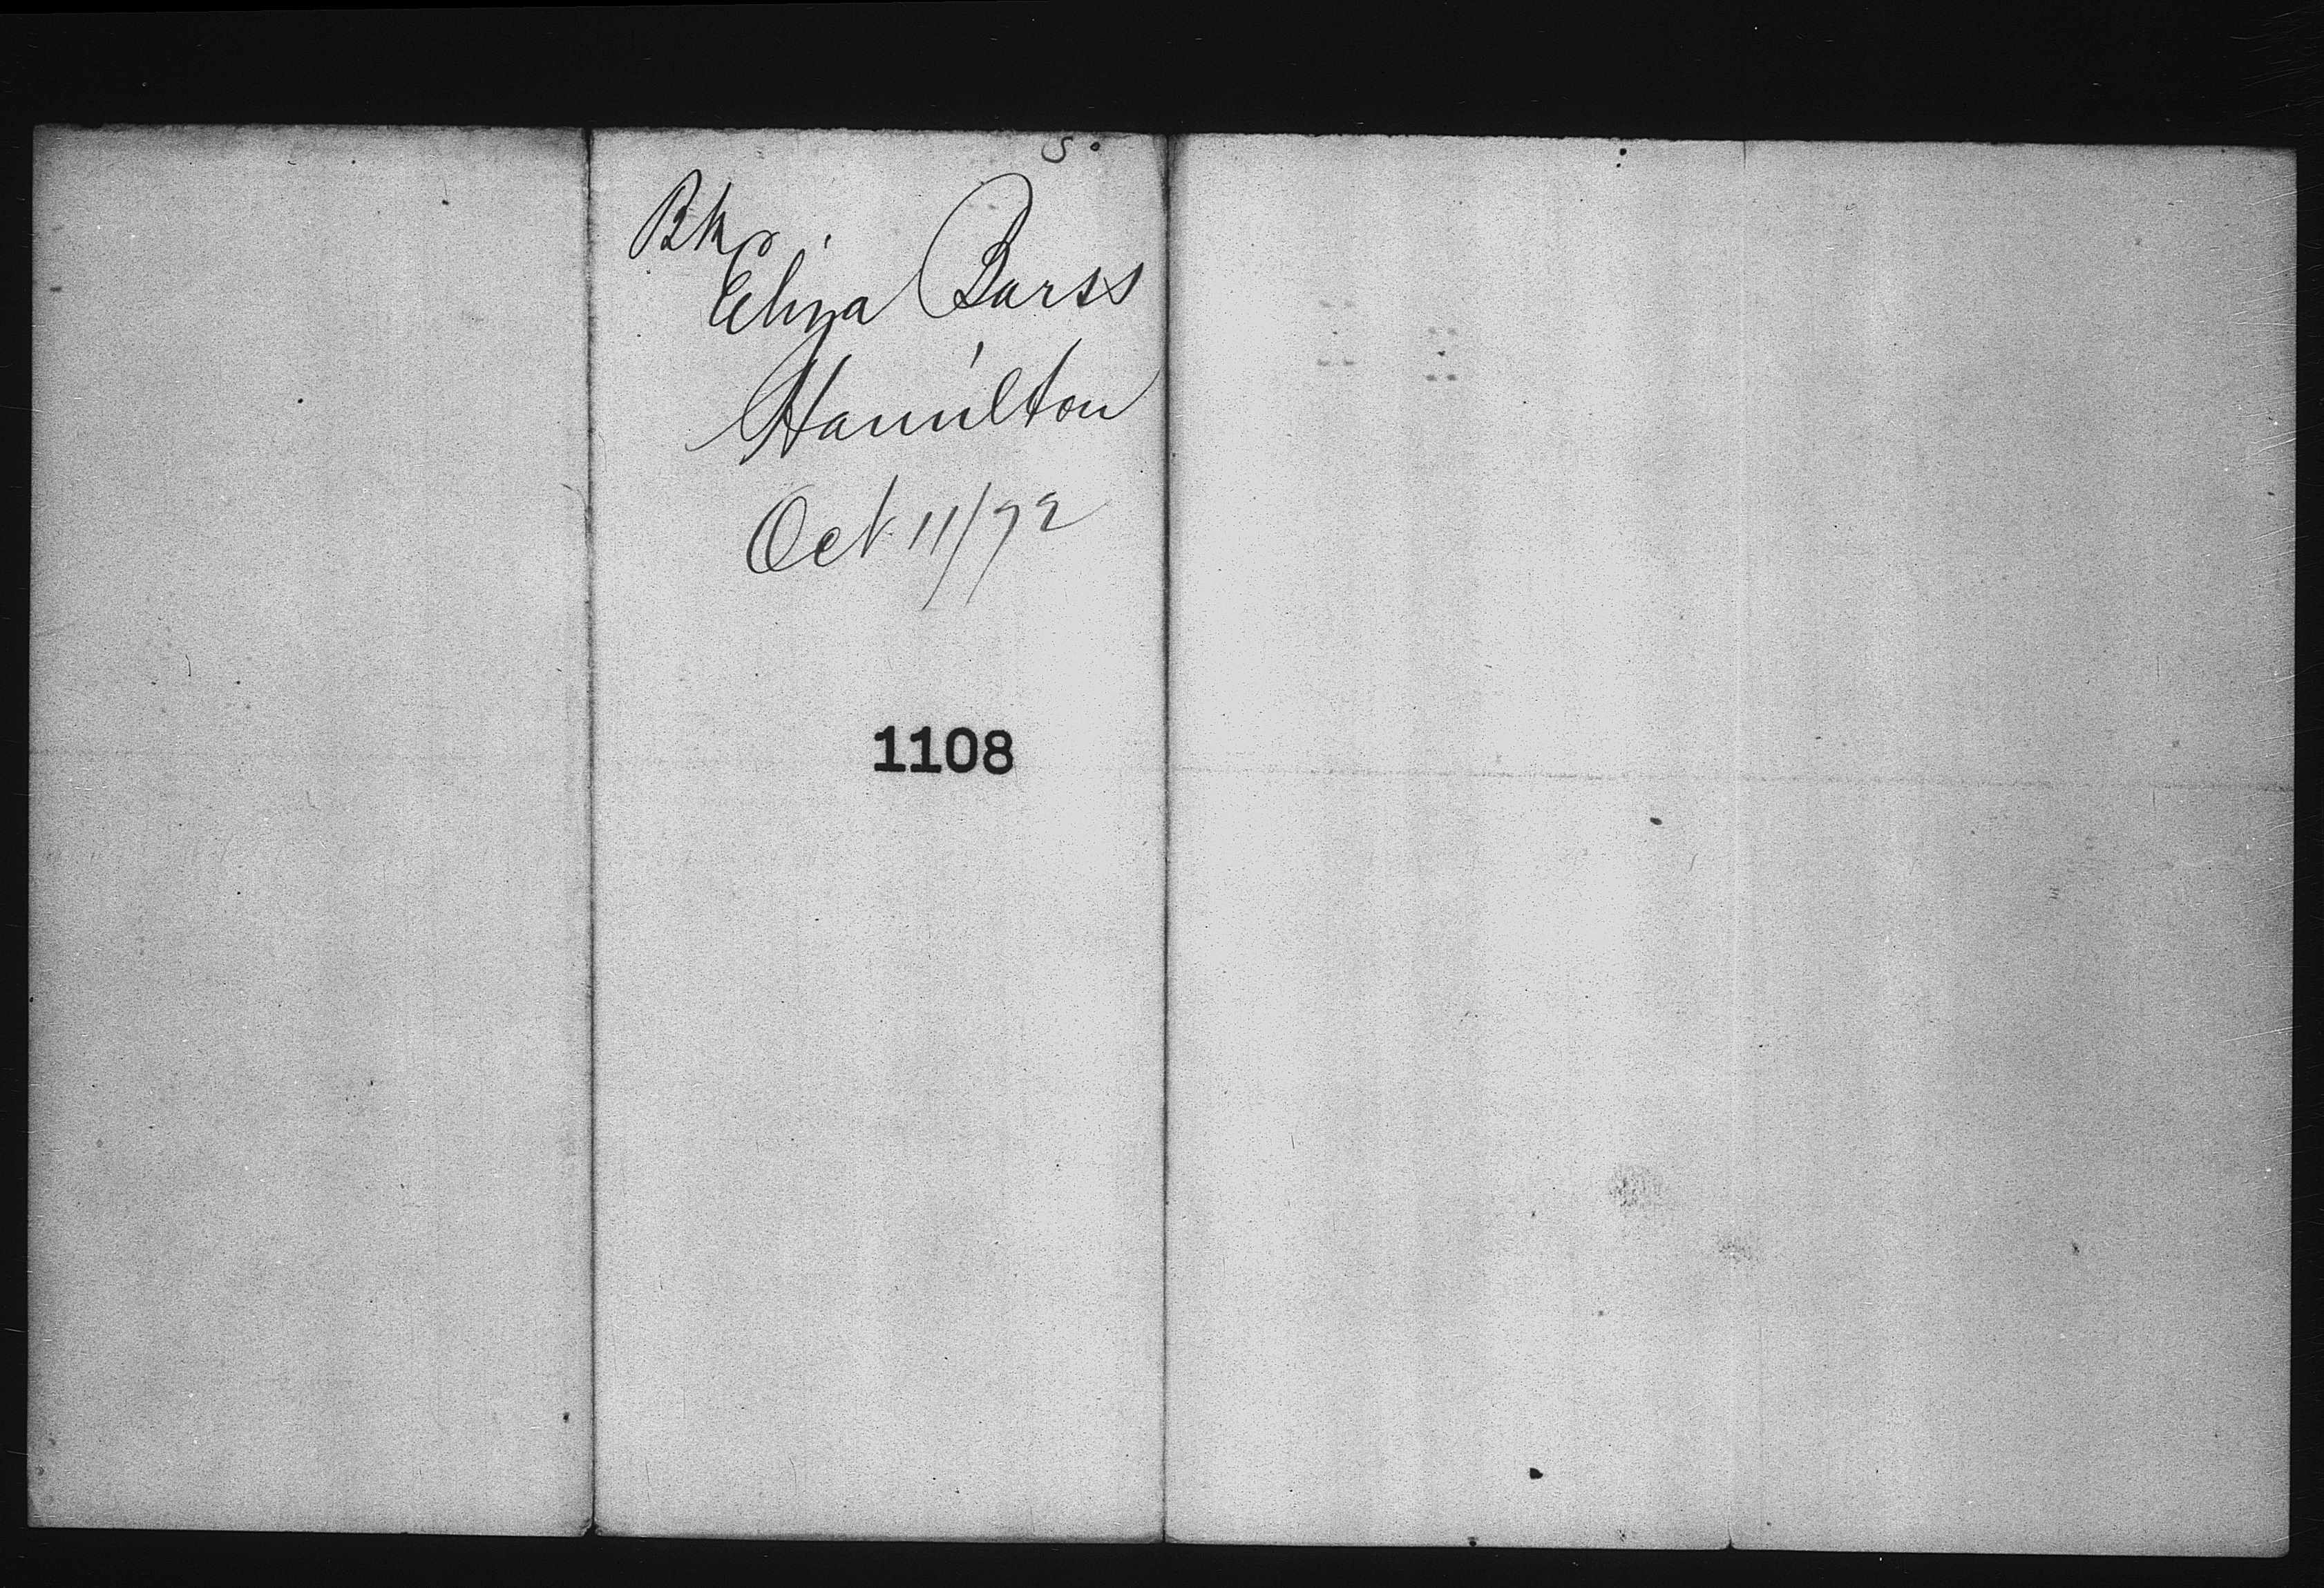 Bk
Eliza Barss
Hamilton
Oct 11/72
1108